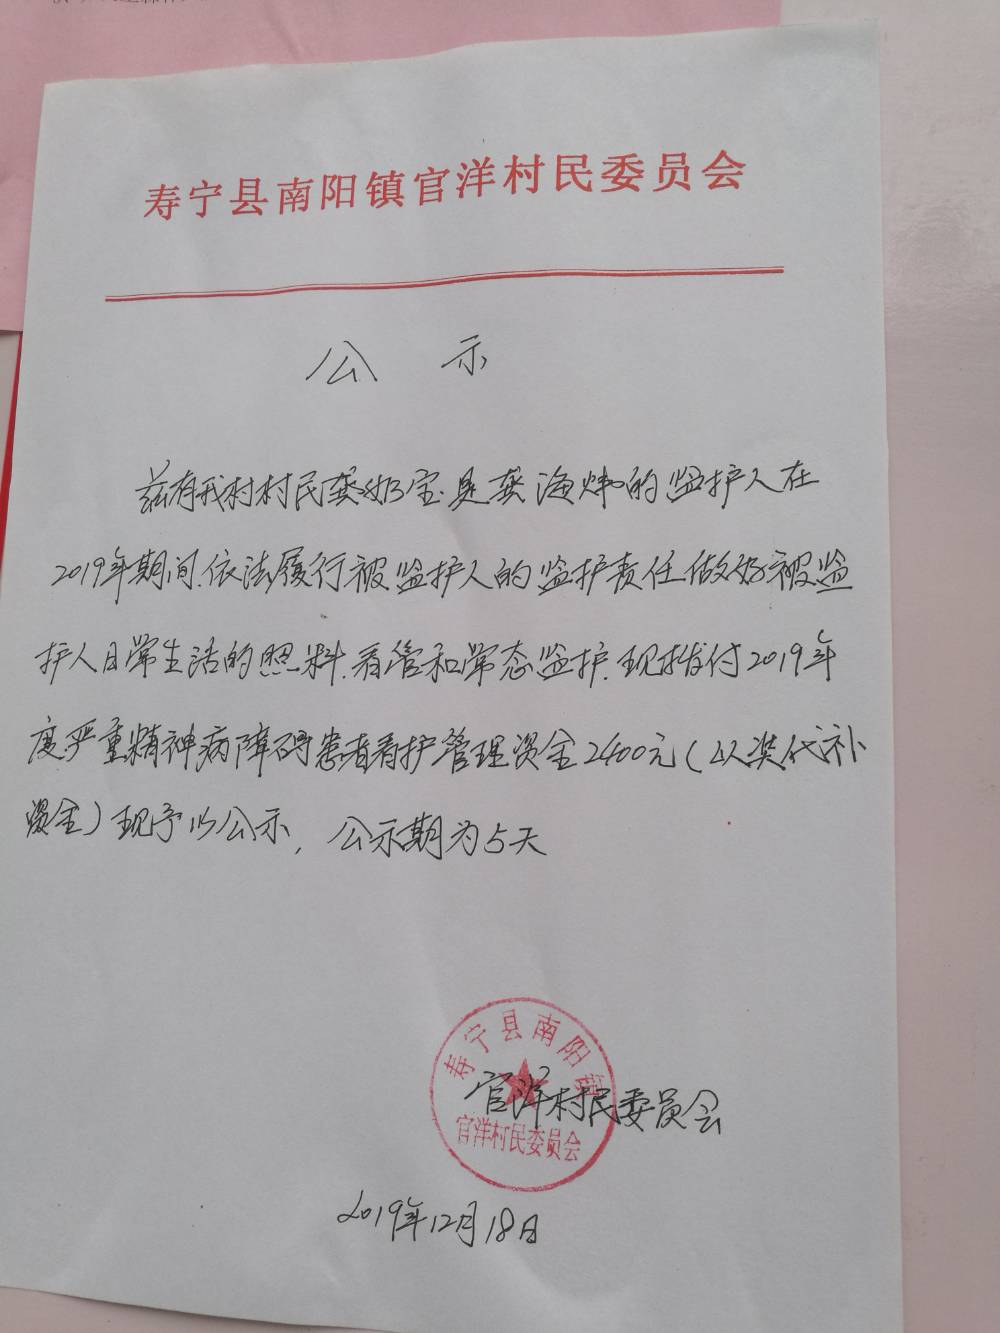 寿宁县南阳镇官洋村民委员会
公示
兹有我村村民龚奶宝.是龚海炜的监护人在
2019年期间.依法履行被监护人的监护责任.做好被监
护人日常生活的照料.看管和常态监护.现拨付2019年
度严重精神病障碍患者看护管理资金2400元(以奖代补
资金)现予以公示,公示期为5天
寿宁县南阳镇
官洋村民委员会
官洋村民委员会
2019年12月18日